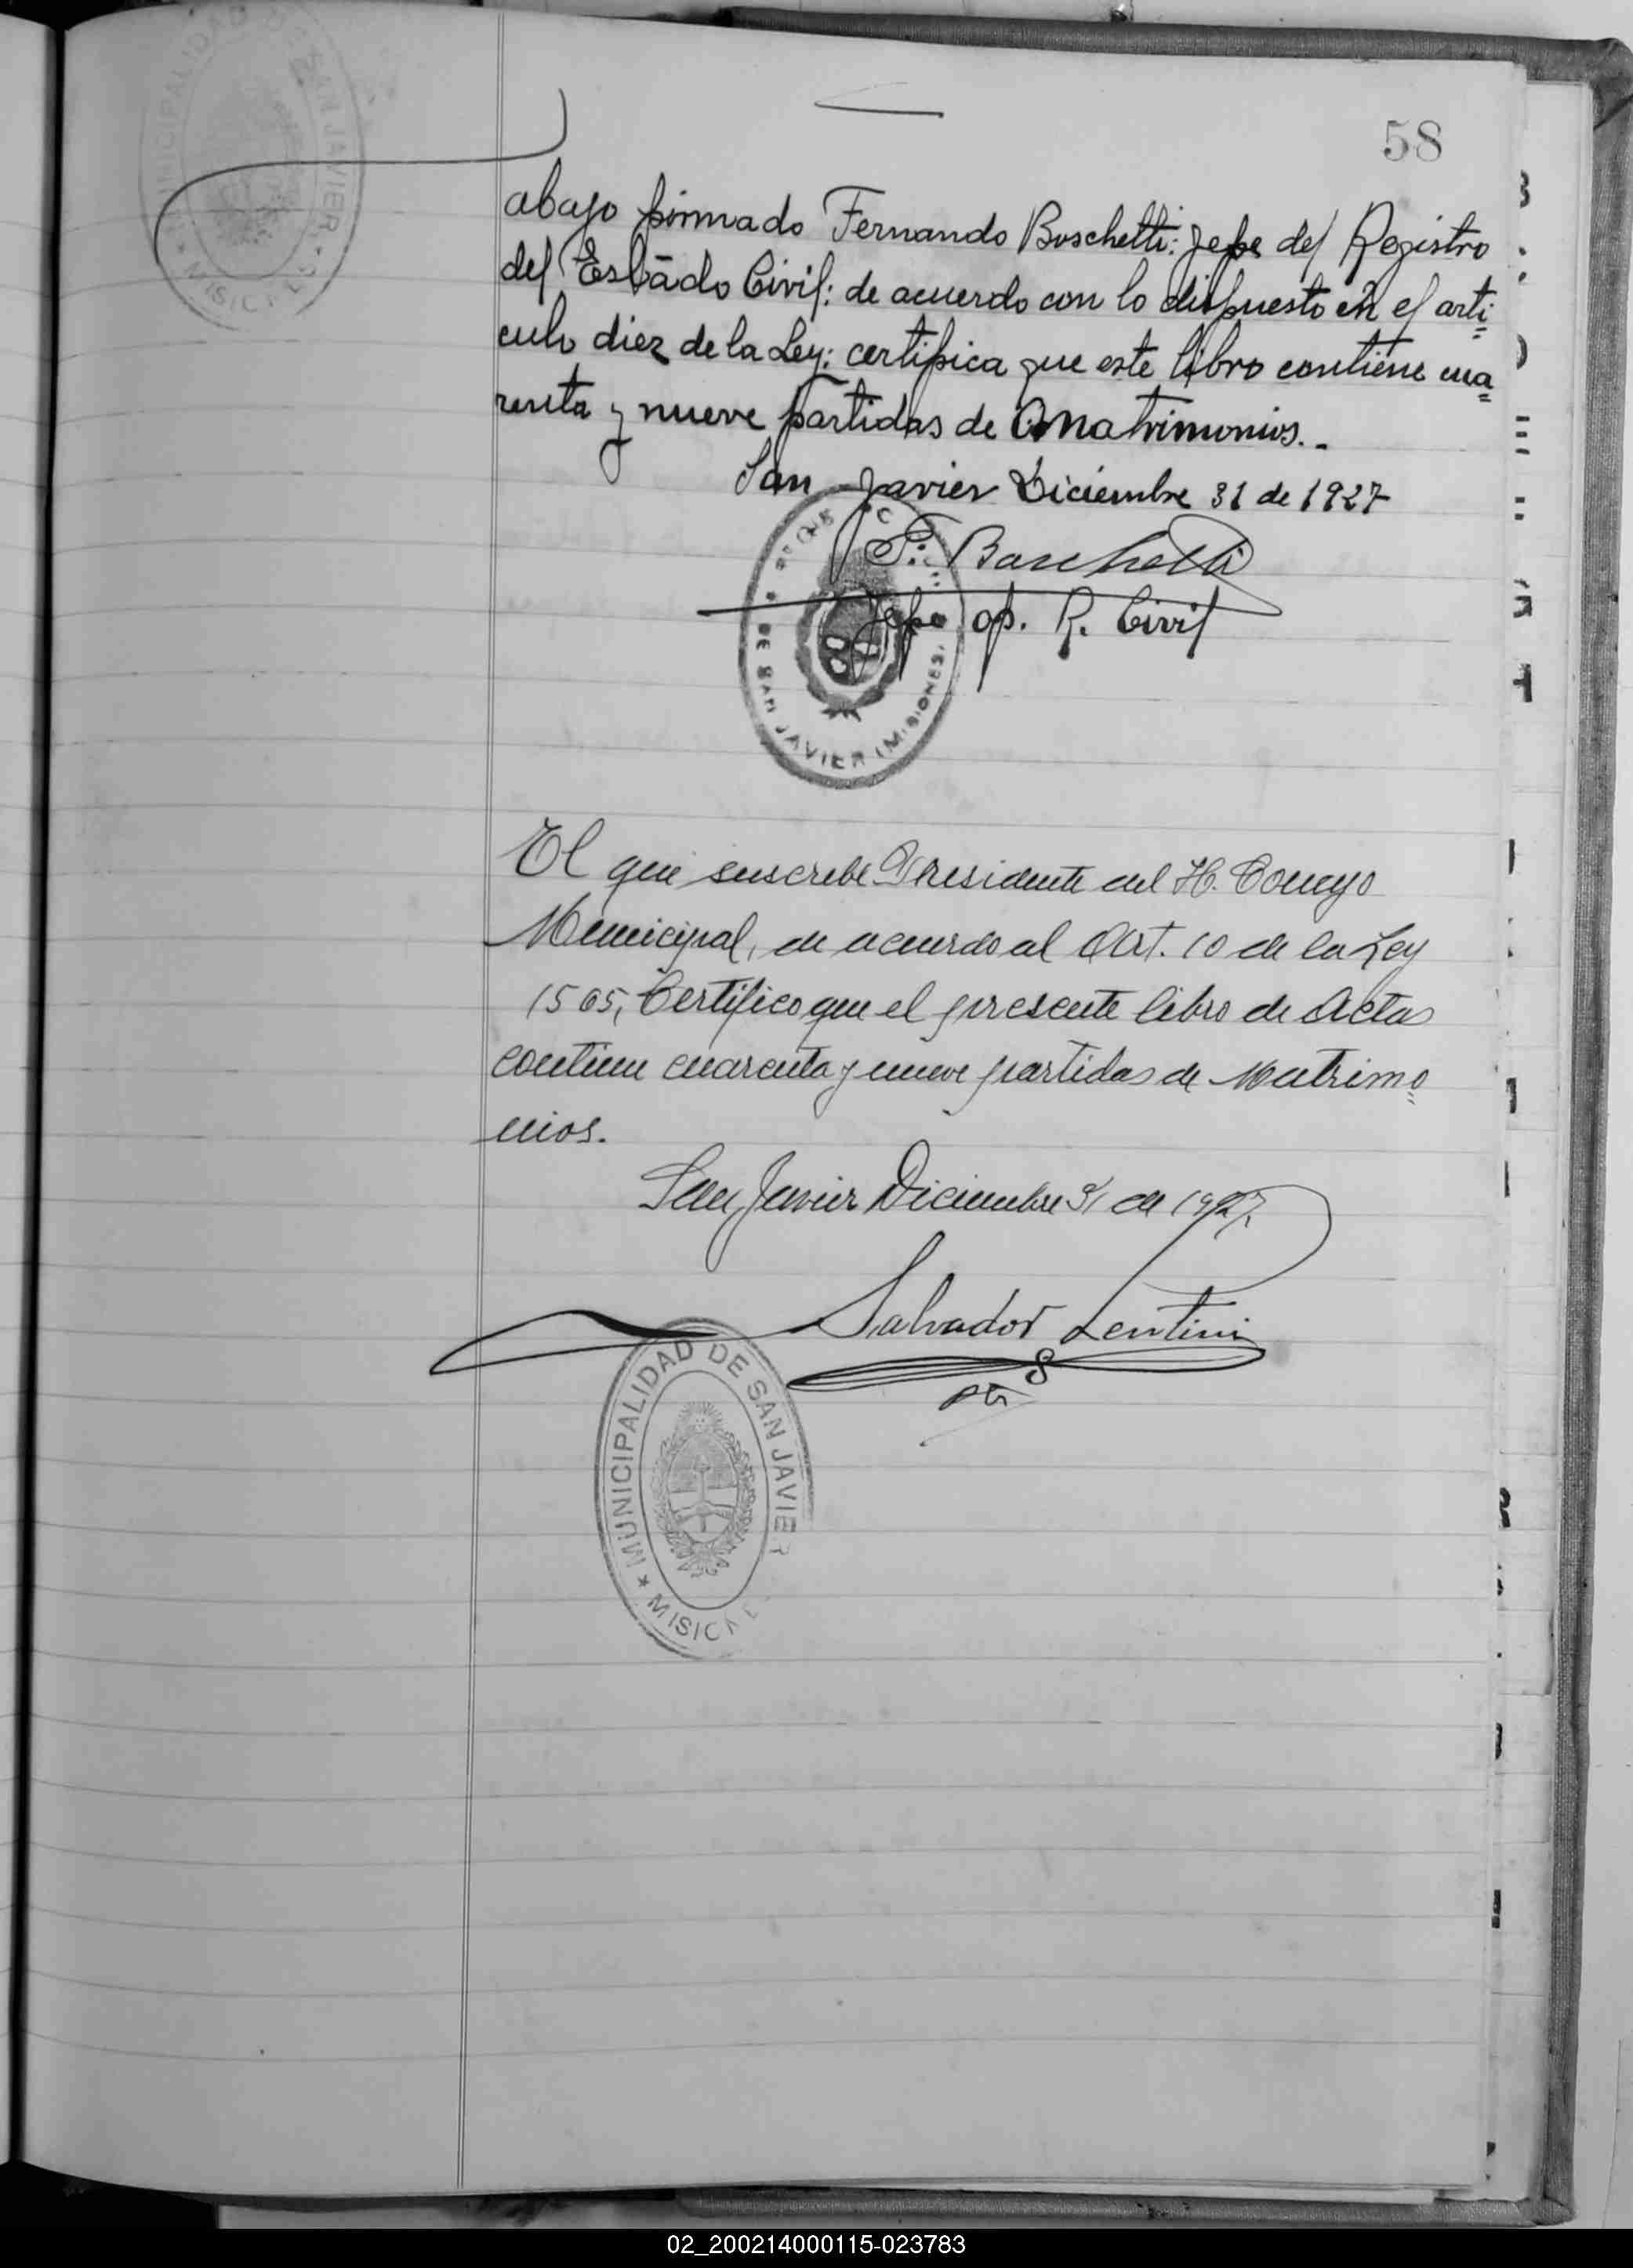 58
abajo firmado Fernando Boschetti: Jefe del Registro
del Estado Civil: de acuerdo con lo dispuesto en el arti=
culo diez de la Ley: certifica que este libro contiene cua=
renta y nueve partidas de Matrimonios.-
San Javier Diciembre 31 de 1927
F. Boschetti
Jefe of. R. Civil
DE SAN JAVIER (MISIONES)
El que suscribe Presidente del H. Concejo
Municipal, de acuerdo al Art. 10 de la Ley
1565, Certifico que el presente libro de Actas
contiene cuarenta y nueve partidas de Matrimo=
nios.
San Javier Diciembre 31 de 1927.
Salvador Lentini
MUNICIPALIDAD DE SAN JAVIER
MUNICIPALIDAD DE SAN JAVIER
02_200214000115-023783